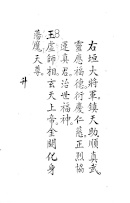 右垣大將軍鎮天助順真武
靈應福德衍慶仁慈正烈協
運真君治世福神
玉虛師相玄天上帝金闕化身
蕩魔天尊
升